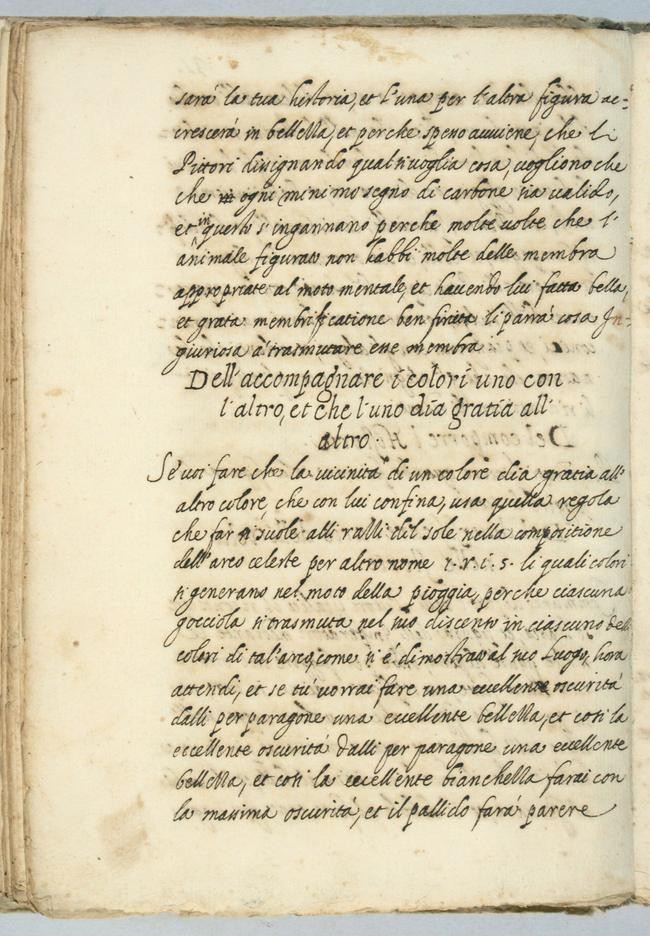 sarà la tua historia, et l'una per l'altra figura ac-
crescerà in bellezza, et perche spesso auuiene, che li
Pittori disignando qual si voglia cosa, vogliono che
che ogni minimo segno di carbone sia valido,
et in questo s'ingannano perche molte volte che l'
animale figurato non habbi molte delle membra
appropriate al moto mentale, et hauendo lui fatta bella,
et grata membrificatione ben finita li parrà cosa In-
giuriosa à trasmutare esse membra
Dell'accompagnare i colori uno con
l'altro, et che l'uno dia gratia all'
altro
Se voi fare che la vicinità di un colore dia gratia all'
altro colore, che con lui confina, usa quella regola
che far si suole alli ralli dil sole nella compositione
dell'arco celeste per altro nome i. r. i. s. li quali colori
si generano nel moto della pioggia, perche ciascuna
gocciola si trasmuta nel suo discenso in ciascuno delli
colori di tal'arco, come si é dimostrato al suo Luogo, hora
attendi, et se tu' vorrai fare una eccellente oscurità
dalli per paragone una eccellente bellezza, et cosi la
eccellente oscurità dalli per paragone una eccellente
bellezza, et cosi la eccellente bianchezza farai con
la massima oscurità, et il pallido farà parere